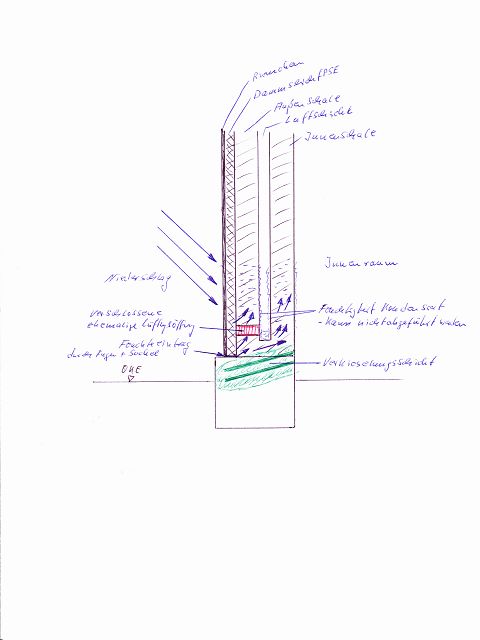 Riemchen
Dämmschicht PSE
Außenschale
Luftschicht
Innenschale
Innenraum
Niederschlag
Verschlossene
ehemalige Lüftgsöffng
Feuchteeintrag
durch Fugen + Sockel
OKE
Feuchtigkeit Kondensat
- Kann nicht abgeführt werden
Verkieselungsschicht